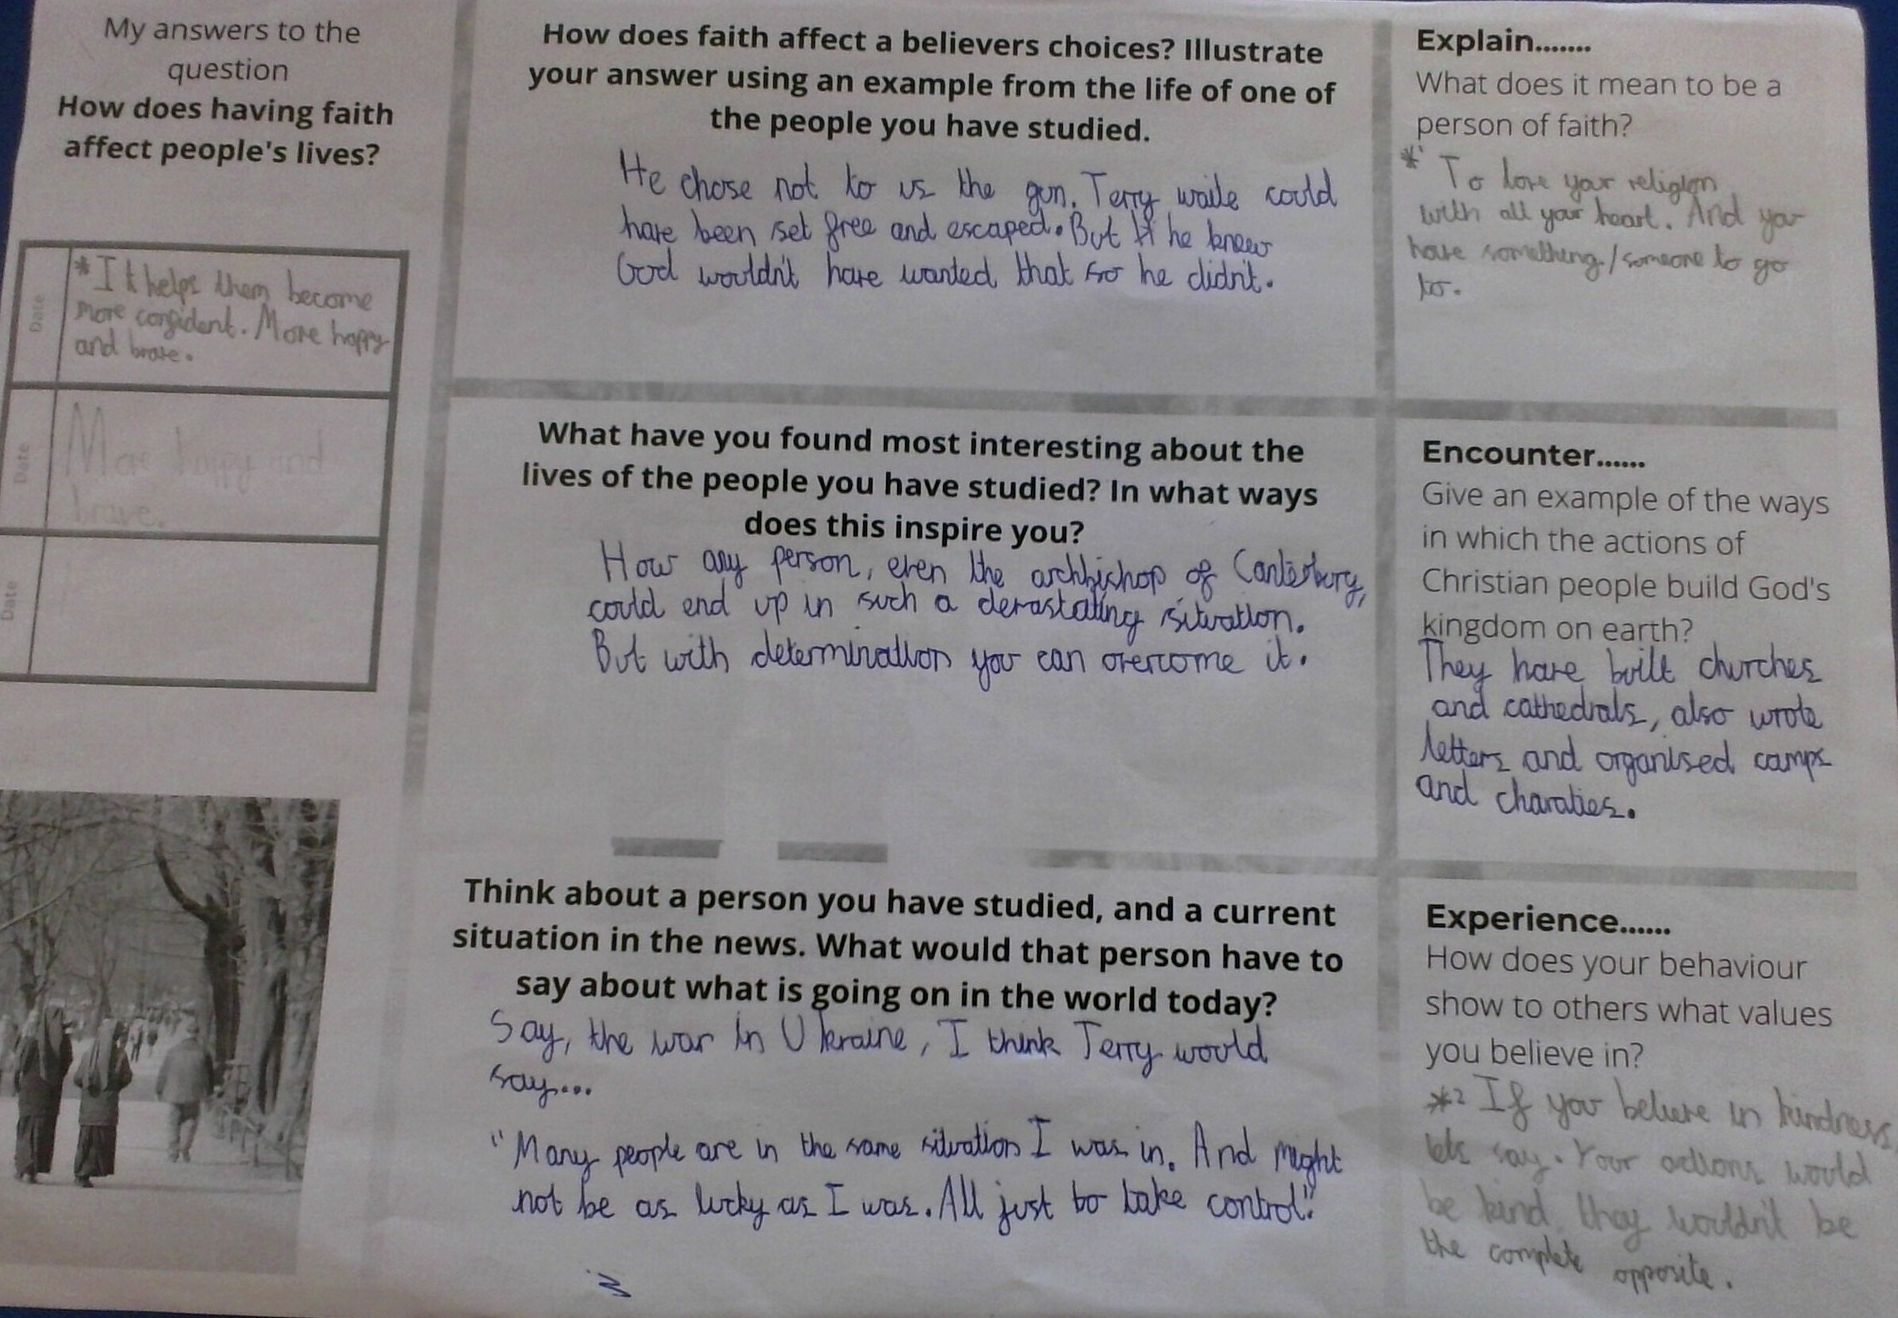 My answers to the
question
How does having faith
affect people's lives?
Date
* It helps them become
more confident. More happy
and brave.
Date
More happy and
brave.
Date
How does faith affect a believers choices? Illustrate
your answer using an example from the life of one of
the people you have studied.
He chose not to us the gun. Terry waite could
have been set free and escaped. But he knew
God wouldn't have wanted that so he didn't.
What have you found most interesting about the
lives of the people you have studied? In what ways
does this inspire you?
How any person, even the archbishop of Canterbury,
could end up in such a devastating situation.
But with determination you can overcome it.
Think about a person you have studied, and a current
situation in the news. What would that person have to
say about what is going on in the world today?
Say, the war in Ukraine, I think Terry would
say...
"Many people are in the same situation I was in. And might
not be as lucky as I was. All just to take control".
Explain.......
What does it mean to be a
person of faith?
*1 To love your religion
with all your heart. And you
have something/someone to go
to.
Encounter......
Give an example of the ways
in which the actions of
Christian people build God's
kingdom on earth?
They have built churches
and cathedrals, also wrote
letters and organised camps
and charaties.
Experience......
How does your behaviour
show to others what values
you believe in?
*2 If you believe in kindness,
lets say. Your actions would
be kind, they wouldn't be
the complete opposite.